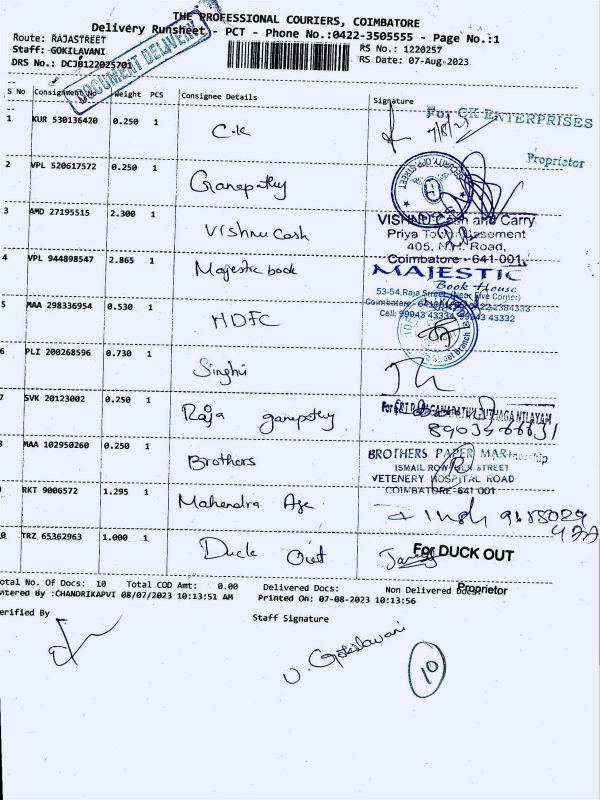 THE PROFESSIONAL COURIERS, COIMBATORE
Delivery Runsheet - PCT - Phone No.:0422-3505555 - Page No.:1
Route: RAJASTREET
RS No.: 1220257
Staff: GOKILAVANI
RS Date: 07-Aug-2023
DRS No.: DCJB122025701
DOCUMENT DELIVERY
S No Consignment No Weight PCS Consignee Details Signature
1 KUR 530136420 0.250 1 C.K 7/8/23
For CK ENTERPRISES
Proprietor
2 VPL 520617572 0.250 1 Ganapathy
3 AMD 27195515 2.300 1 Vishnu Cash
VISHNU Cash and Carry
Priya Tower Basement
405, N.H. Road,
Coimbatore - 641 001.
4 VPL 944898547 2.865 1 Majestic book
MAJESTIC
Book House
53-54,Raja Street, (Near Five Corner)
Cell: 99043 43334, 43332
5 MAA 298336954 0.530 1 HDFC
6 PLI 200268596 0.730 1 Singhvi
7 SVK 20123002 0.250 1 Raja ganapathy
8 MAA 102950260 0.250 1 Brothers
BROTHERS PAPER MART
ISMAIL ROWTHER STREET
VETENERY HOSPITAL ROAD
COIMBATORE-641 001
9 RKT 9006572 1.295 1 Mahendra Age
10 TRZ 65362963 1.000 1 Duck Out
For DUCK OUT
Proprietor
Total No. Of Docs: 10 Total COD Amt: 0.00 Delivered Docs: Non Delivered Docs:
Entered By :CHANDRIKAPVI 08/07/2023 10:13:51 AM Printed On: 07-08-2023 10:13:56
Verified By Staff Signature
V. Gokilavani
10